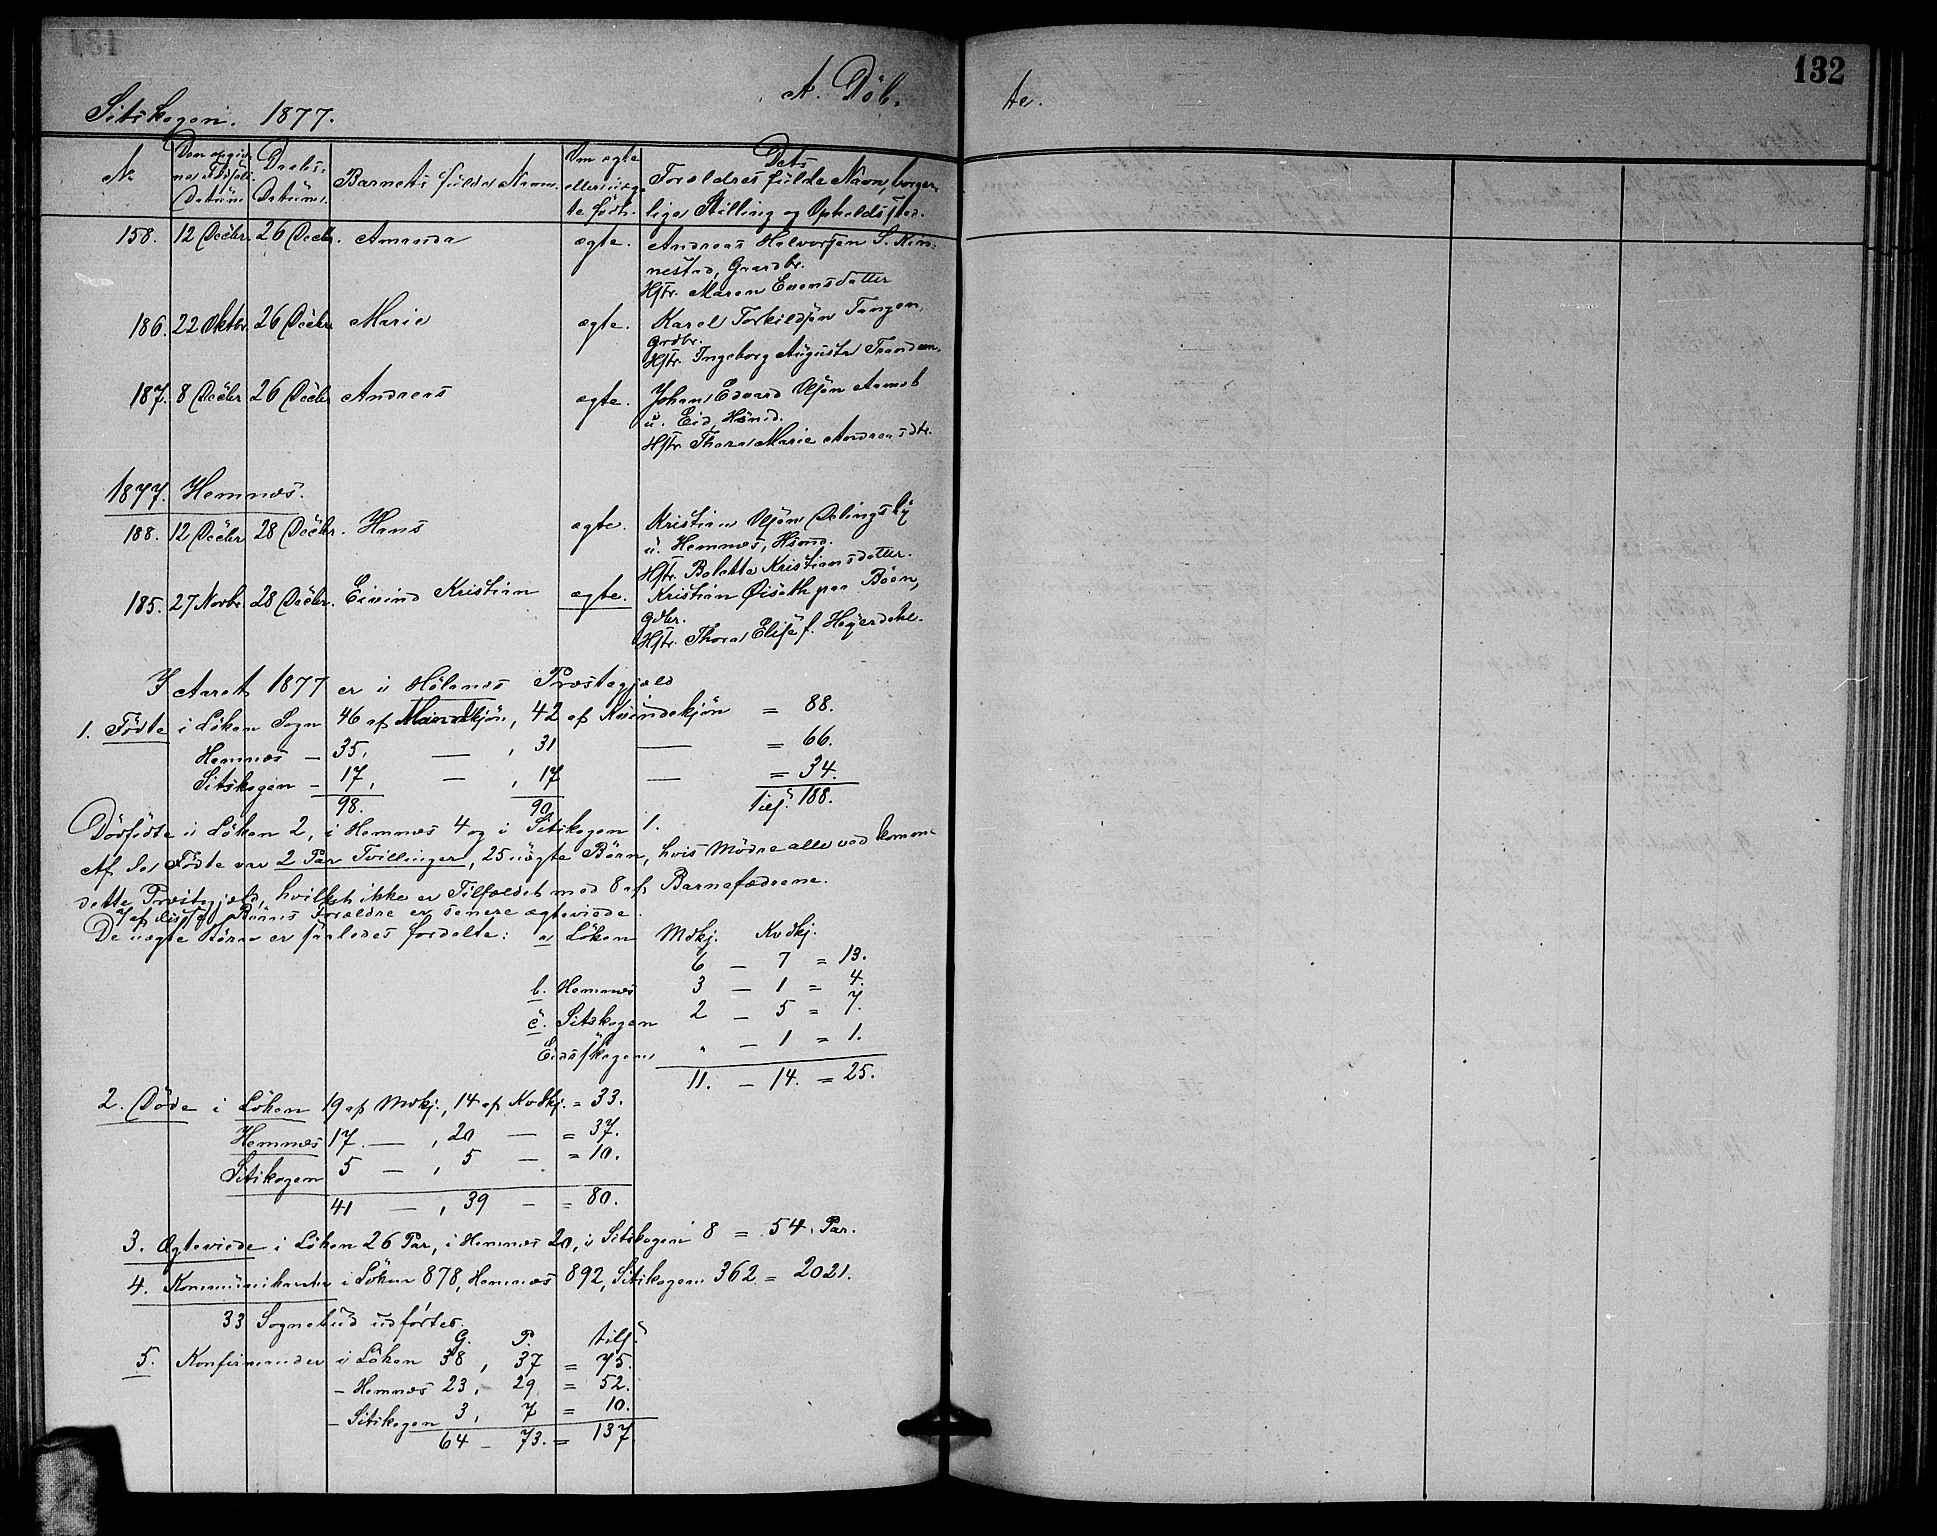 132
A. Döb-
te.
Sitskogen. 1877.
№
Den opgiv-
ne Födsels-
Datum
Daabs-
Datum.
Barnets fulde Navn.
Om ægte
eller uæg-
te födt.
Dets
Forældres fulde Navn, borger-
lige Stilling og Opholdssted.
158. 12 Decbr. 26 Decbr. Amanda ægte. Andreas Halvorsen S. Kin-
nestad, Gaardbr.
Hstr. Maren Evensdatter
186. 22 Oktbr. 26 Decbr. Marie ægte. Karel Torkildsen Tangen,
Grdbr.
Hstr. Ingeborg Augusta Trandem.
187. 8 Decbr 26 Decbr Andreas ægte. Johan Edvard Olsen Aamot
u. Eid, Hsmd.
Hstr. Thora Marie Andreasdtr.
1877. Hemnæs.
188. 12 Decbr 28 Decbr. Hans ægte. Kristian Olsen Delingsby
u. Hemnæs, Hsmd.
Hstr. Bolette Kristiansdatter.
185. 27 Novbr. 28 Decbr. Eivind Kristian ægte. Kristian Öisæth paa Böen,
Gdbr.
Hstr. Thora Elise f. Høyerdahl.
I Aaret 1877 er i Hölands Præstegjæld
1. Födte i Löken Sogn 46 af Mandkjön, 42 af Kvindekjön = 88.
Hemnæs — 35, — , 31 — = 66.
Sitskogen — 17, — , 17 — = 34.
98. 90 Tils. 188.
Dödfödte i Löken 2, i Hemnæs 4 og i Sitskogen 1.
Af de Födte var 2 Par Tvillinger, 25 uægte Börn, hvis Mödre alle vedkomme
dette Præstegjæld, hvilket ikke er Tilfældet med 8 af Barnefædrene.
7 af disse Börns Forældre er senere ægteviede.
De uægte Börn er saaledes fordelte: a. Löken Mdkj. Kvdkj.
6 — 7 = 13.
b. Hemnæs 3 — 1 = 4.
c. Sitskogen 2 — 5 = 7.
Eidsskogen " — 1 = 1.
11. — 14. = 25.
2. Döde i Löken 19 af Mdkj., 14 af Kvdkj. = 33.
Hemnæs 17 — , 20 — = 37.
Sitskogen 5 — , 5 — = 10.
41 — , 39 — = 80.
3. Ægteviede i Löken 26 Par, i Hemnæs 20, i Sitskogen 8 = 54. Par.
4. Kommunikanter i Löken 878, Hemnæs 892, Sitskogen 362 = 2021.
33 Sognebud udförtes.
G. P. tils.
5. Konfirmander i Löken 38, 37 = 75.
— Hemnæs 23, 29 = 52.
— Sitskogen 3, 7 = 10.
64 — 73. = 137.